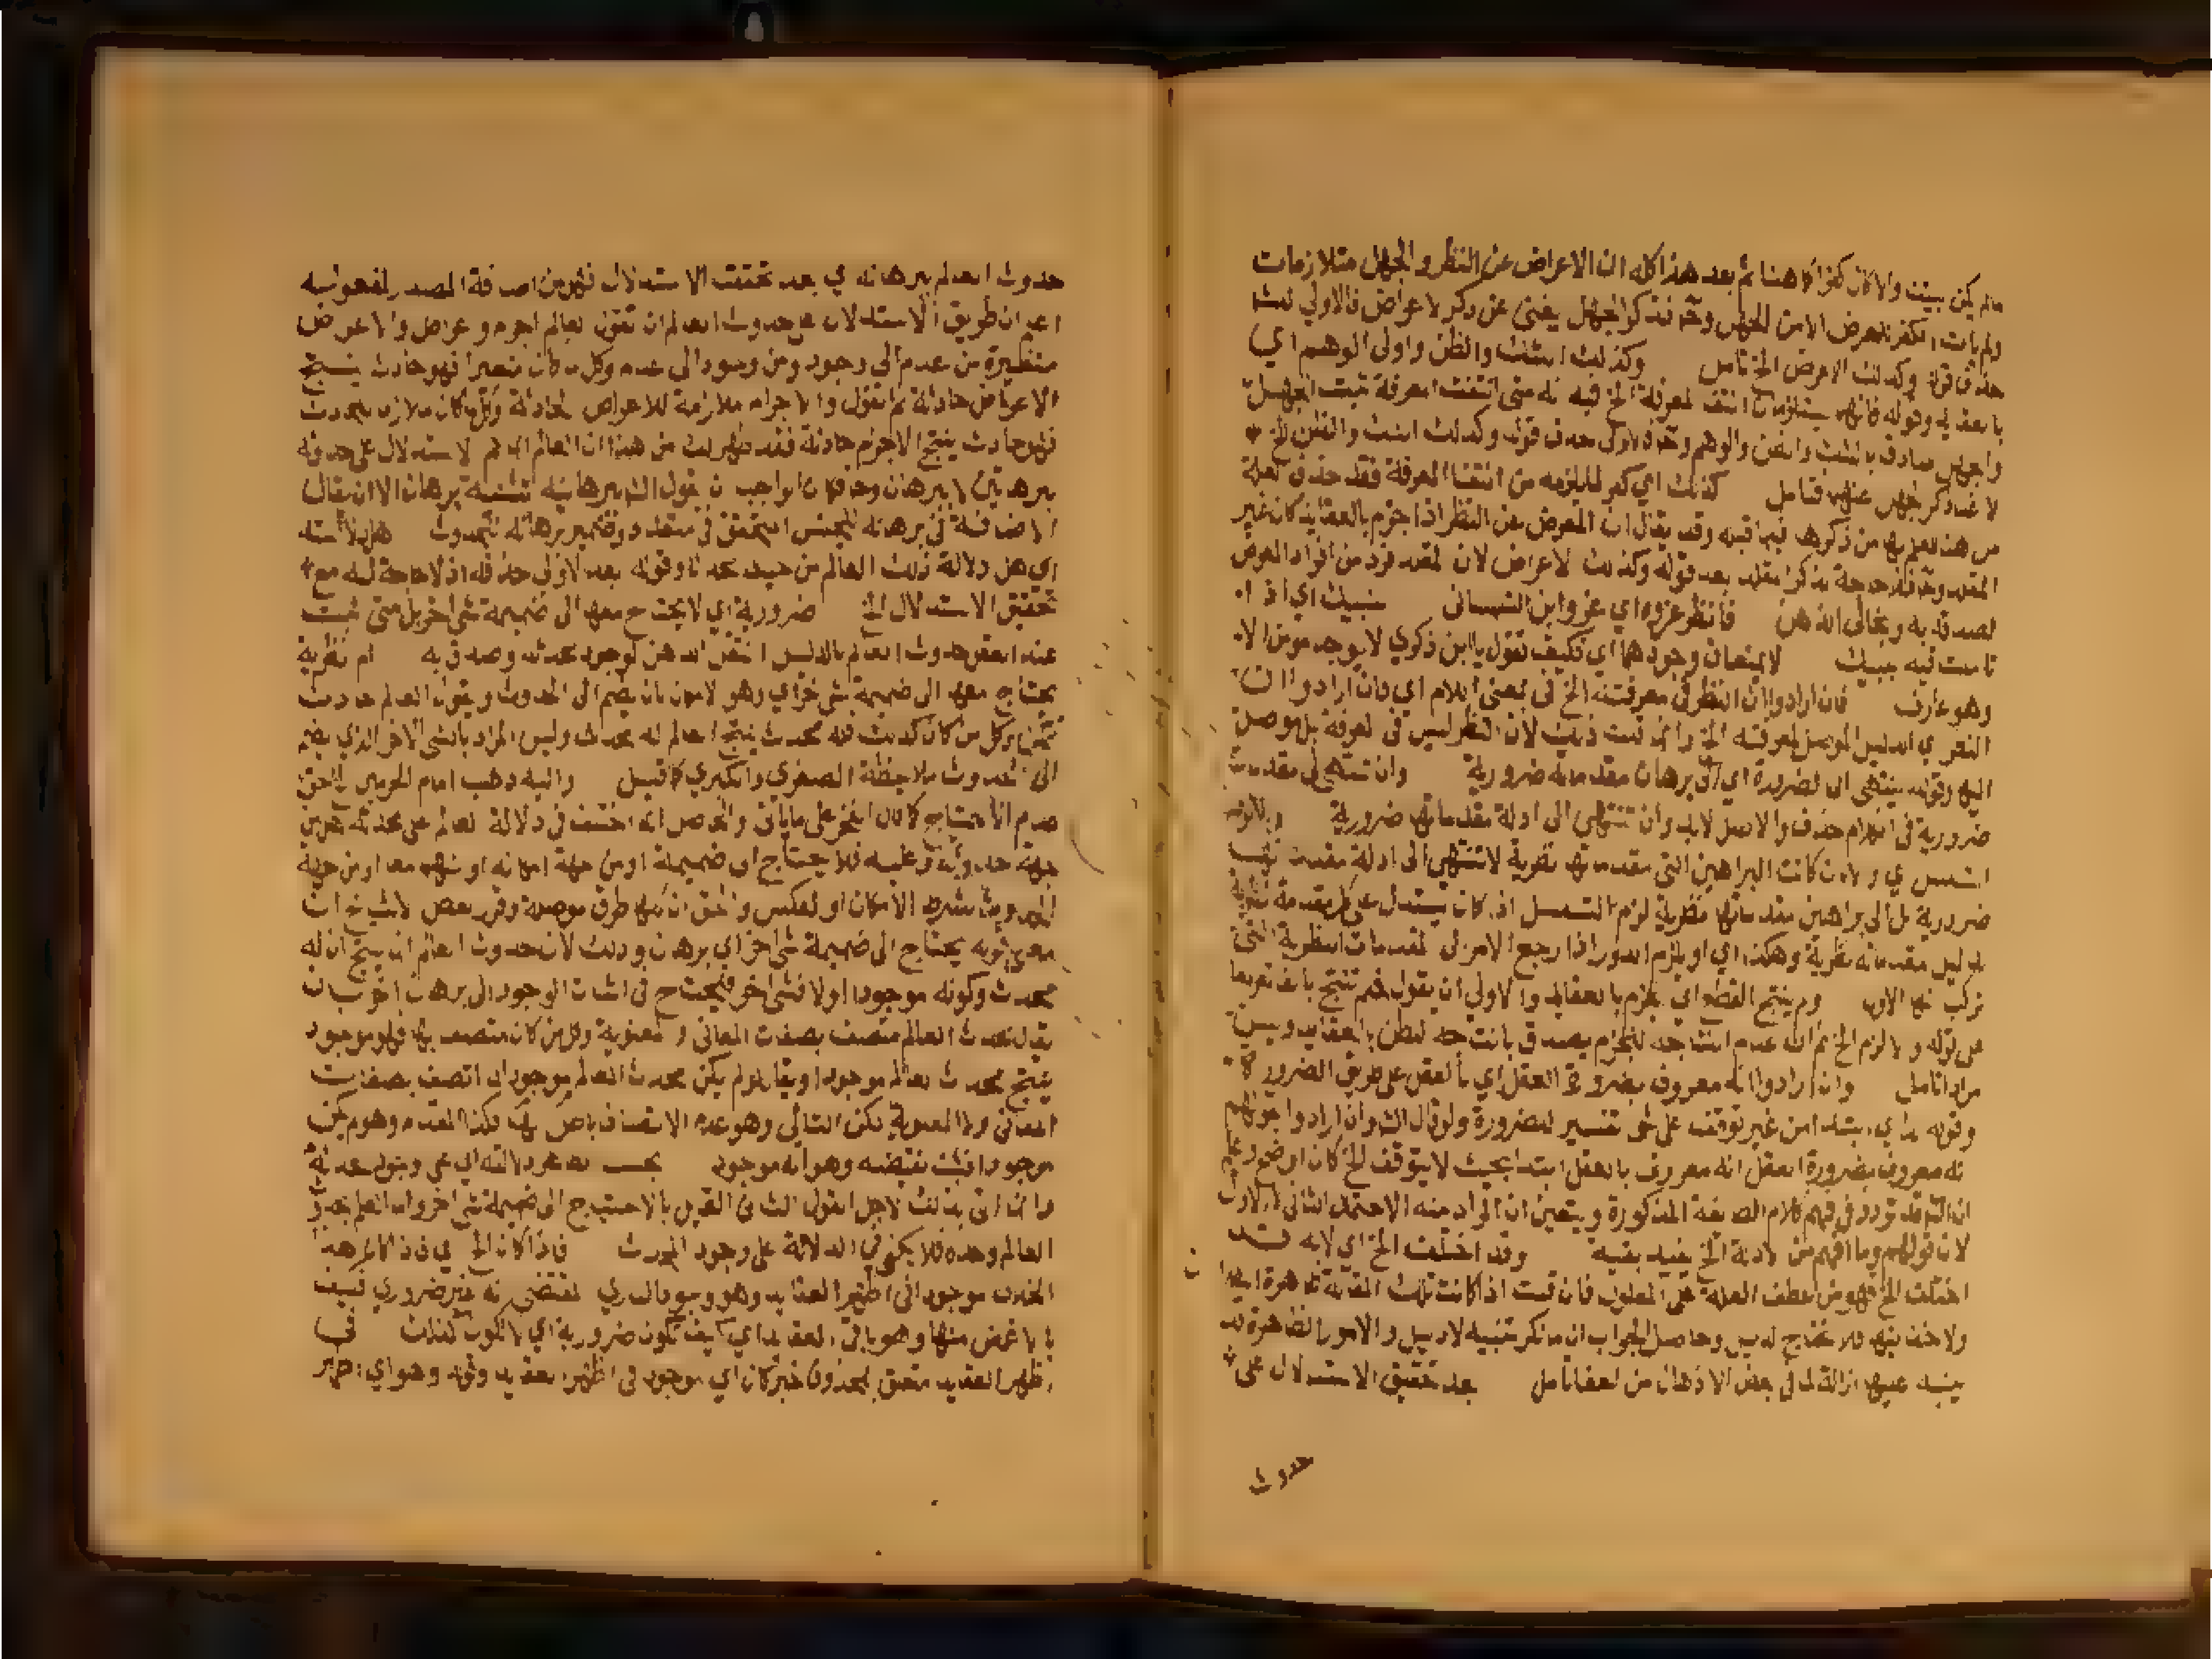 مالم يكن ببيت والا كان كفرا كاهنا ثم بعد هذا كله ان الاعراض عن النظر والجهل متلازمات
ولم يأت الكفر لمعرض الا من الجهل وح فذكر الجهل يغني عن ذكر الاعراض فالاولى للش
حذف قوله وكذلك الاعرض الخ تامل وكذلك الشك والظن واولى الوهم اي
بالعقايد وقوله فانهم يستلزمان انتفا المعرفة الخ فيه انه متى انتفت المعرفة ثبت الجهل
والجهل صادق بالشك والظن والوهم وح فالاولى حذف قوله وكذلك الشك والظن الخ
لاغناء ذكر الجهل عنهم فتامل كذلك اي كفر لما يلزمه من انتفا المعرفة فقد حذف العلة
من هنا للعلم بها من ذكرها فيما قبله وقد يقال ان المعرض عن النظر اذا جزم بالعقايد كان غير
المقلد وح فلا حاجة لذكر المقلد بعد قوله وكذلك الاعراض لان المقلد فرد من افراد المعرض
لصدقه به وبخالى الذهن فانظر عزوه اي عزو ابن التلمساني ببيك اي اذا
تاملت فيه ببيك لا يمنعان وجودهما اي فكيف تقول يا ابن ذكري لا يوجد مومن الا
وهو عارف فان ارادوا ان النظر في معرفته الخ في بمعنى اللام اي فان ارادوا ان
النظر اي الدليل الموصل لمعرفته الخ وانما قلت ذلك لان النظر ليس في المعرفة بل موصل
اليها وقوله ينتهي الى الضرورة اي الى برهان مقدماته ضرورية وان تنتهي الى مقدمات
ضرورية في الكلام حذف والاصل لابد وان تنتهي الى ادلة مقدماتها ضرورية والا لزم
التسلسل اي والا بان كانت البراهين التي مقدماتها نظرية لا تنتهي الى ادلة مقدمات
ضرورية بل الى براهين مقدماتها نظرية لزم التسلسل اذ كان يستدل على كل مقدمة نظرية
بدليل مقدماته نظرية وهكذا اي او يلزم الدور اذا رجع الامر الى المقدمات النظرية التي
تركب منها الاول ولم ينتج القطع اي الجزم بالعقايد والاولى ان يقول فلم تنتج بالفا تفريعا
على قوله والا لزم الخ ثم ان عدم انتاجه للجزم يصدق بانتاجه للظن بالعقايد وليس
مرادا تامل وان ارادوا انه معروف بضرورة العقل اي بالعقل على طريق الضرورة
وقوله بداي ابتدا من غير توقف على شي تفسير للضرورة ولو قال الش وان ارادوا بقولهم
انه معروف بضرورة العقل انه معروف بالعقل ابتدا بحيث لا يتوقف الخ كان اوضح
ان الش قد تردد في فهم كلام الصائفة المذكورة ويتعين ان المراد منه الاحتمال الثاني لا الاول
لان قولهم وما افهم من ادلة الخ يفيد بقيه وقد اختلف الخ اي لانه قد
اختلف الخ فهو من عطف العلة على المعلول فان قلت اذا كانت تلك المقدمة ظاهرة
ولا خفا فيها فلا تحتاج لدليل وحاصل الجواب ان ما ذكر تنبيه لا دليل والامور الظاهرة قد
ينبه عليها ازالة لما في بعض الاذهان من الخفا تامل بعد تحقيق الاستدلال على
حدوث
حدوث العالم ببرهانه اي بعد تحقق الاستدلال فهو من اضافة المصدر لمفعوله
اعلم ان طريق الاستدلال على حدوث العالم ان تقول العالم اجرام واعراض والاعراض
متغيرة من عدم الى وجود ومن وجود الى عدم وكل ما كان متغيرا فهو حادث ينتج
الاعراض حادثة ثم تقول والاجرام ملازمة للاعراض الحادثة وكل ما كان ملازما للحادث
فهو حادث ينتج الاجرام حادثة فقد ظهر لك من هذا ان العالم انما تم الاستدلال على حدوثه
ببرهانين لا ببرهان وح فكان الواجب ان يقول الش ببرهانيه بتثنية برهان الا ان يقال
الاضافة في برهانه للجنس المتحقق في متعدد وضمير برهانه للحدوث هل دلالته
اي هل دلالة ذلك العالم من حيث حدوثه وقوله بعد الاولى حذفه اذ لا حاجة له مع
تحقيق الاستدلال الخ ضرورية اي لا يحتاج معها الى ضميمة شي اخر بل متى ثبت
عند العقل حدوث العالم بالدليل انتقل الذهن لوجود محدثه وصدق به ام نظرية
يحتاج معها الى ضميمة شي اخر اي وهو الامكان بان يضم الى الحدوث ويقول العالم حادث
ممكن وكل من كان كذلك فله محدث ينتج العالم له محدث وليس المراد بالشي الاخر الذي يضم
الى الحدوث ملاحظة الصغرى والكبرى كما قيل واليه ذهب امام الحرمين الحق
عدم الاحتياج كما قال الفخر على ما ياتي والحاصل انه اختلف في دلالة العالم على محدثه هل من
جهة حدوثه وعليه فلا يحتاج الى ضميمة او من جهة امكانه او منهما معا او من جهة
الحدوث بشرط الامكان او العكس والحق ان كلها طرق موصلة وقرر بعض الاشياخ ان
معنى قوله يحتاج الى ضميمة شي اخر اي برهان وذلك لان حدوث العالم انما ينتج ان له
محدث وكونه موجودا اولا فشي اخر فيحتاج في اثبات الوجود الى برهان اخر بان
يقال محدث العالم متصف بصفات المعاني والمعنوية وكل من كان متصف بها فهو موجود
ينتج محدث العالم موجود او يقال لو لم يكن محدث العالم موجودا لما اتصف بصفات
المعاني ولا المعنوية لكن التالي وهو عدم الاتصاف باطل فكذا المقدم وهو لم يكن
موجودا فثبت نقيضه وهو انه موجود بحسب مجرد دلالته اي على وجود محدثه
وانما اتى بذلك لاجل القول الثاني القايل بالاحتياج الى ضميمة شي اخر واما العلم بحدوث
العالم وحده فلا يكفي في الدلالة على وجود المحدث فاذا كان الخ اي فاذا كان هذا
الخلاف موجود في اظهر العقايد وهو وجود الباري المقتضي انه غير ضروري فكيف
بالاغمض منها وهو باقي العقايد اي كيف تكون ضرورية اي لا تكون كذلك في
اظهر العقايد متعلق بمحذوف خبر كان اي موجود في اظهر العقايد وقوله وهو اي اظهر